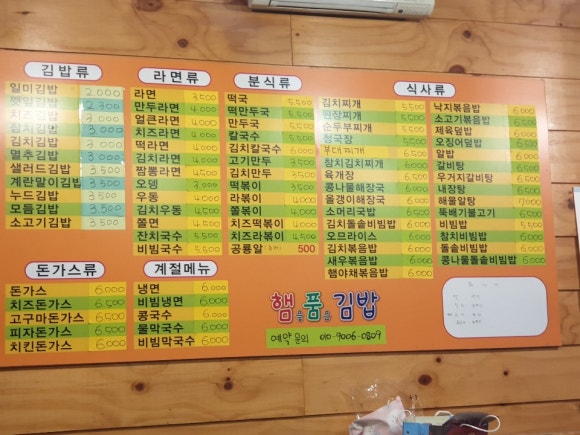 김밥류
일미김밥 2,000
햇님김밥 2,300
치즈김밥 3,000
참치김밥 3,000
김치김밥 3,000
멸추김밥 3,000
샐러드김밥 3,500
계란말이김밥 3,500
누드김밥 3,500
모듬김밥 3,500
소고기김밥 3,500
라면류
라면 3,500
만두라면 4,000
얼큰라면 4,000
치즈라면 4,000
떡라면 4,000
김치라면 4,000
짬뽕라면 4,500
오뎅 3,000
우동 4,000
김치우동 4,500
쫄면 5,000
잔치국수 5,500
비빔국수 5,500
분식류
떡국 5,500
떡만두국 5,500
만두국 5,500
칼국수 5,500
김치칼국수 6,000
고기만두
김치만두
떡볶이
라볶이
쫄볶이
치즈떡볶이
치즈라볶이 5,000
공룡알 500
식사류
김치찌개 5,500
된장찌개 5,500
순두부찌개 5,500
청국장
부대찌개
참치김치찌개 6,000
육개장 6,000
콩나물해장국 6,000
올갱이해장국 6,000
소머리국밥 6,000
김치돌솥비빔밥 6,000
오므라이스 6,000
김치볶음밥 6,000
새우볶음밥 6,000
햄야채볶음밥 6,000
낙지볶음밥 6,000
소고기볶음밥 6,000
제육덮밥 6,000
오징어덮밥 6,000
알밥 6,000
갈비탕
우거지갈비탕
내장탕
해물알탕 7,000
뚝배기불고기
비빔밥
참치비빔밥
돌솥비빔밥 6,000
콩나물돌솥비빔밥 6,000
돈가스류
돈가스 6,000
치즈돈가스 6,500
고구마돈가스 6,500
피자돈가스 6,500
치킨돈가스 6,000
계절메뉴
냉면 6,000
비빔냉면 6,000
콩국수 6,000
물막국수 6,000
비빔막국수 6,000
햄을품은김밥
예약문의 010-9006-0809